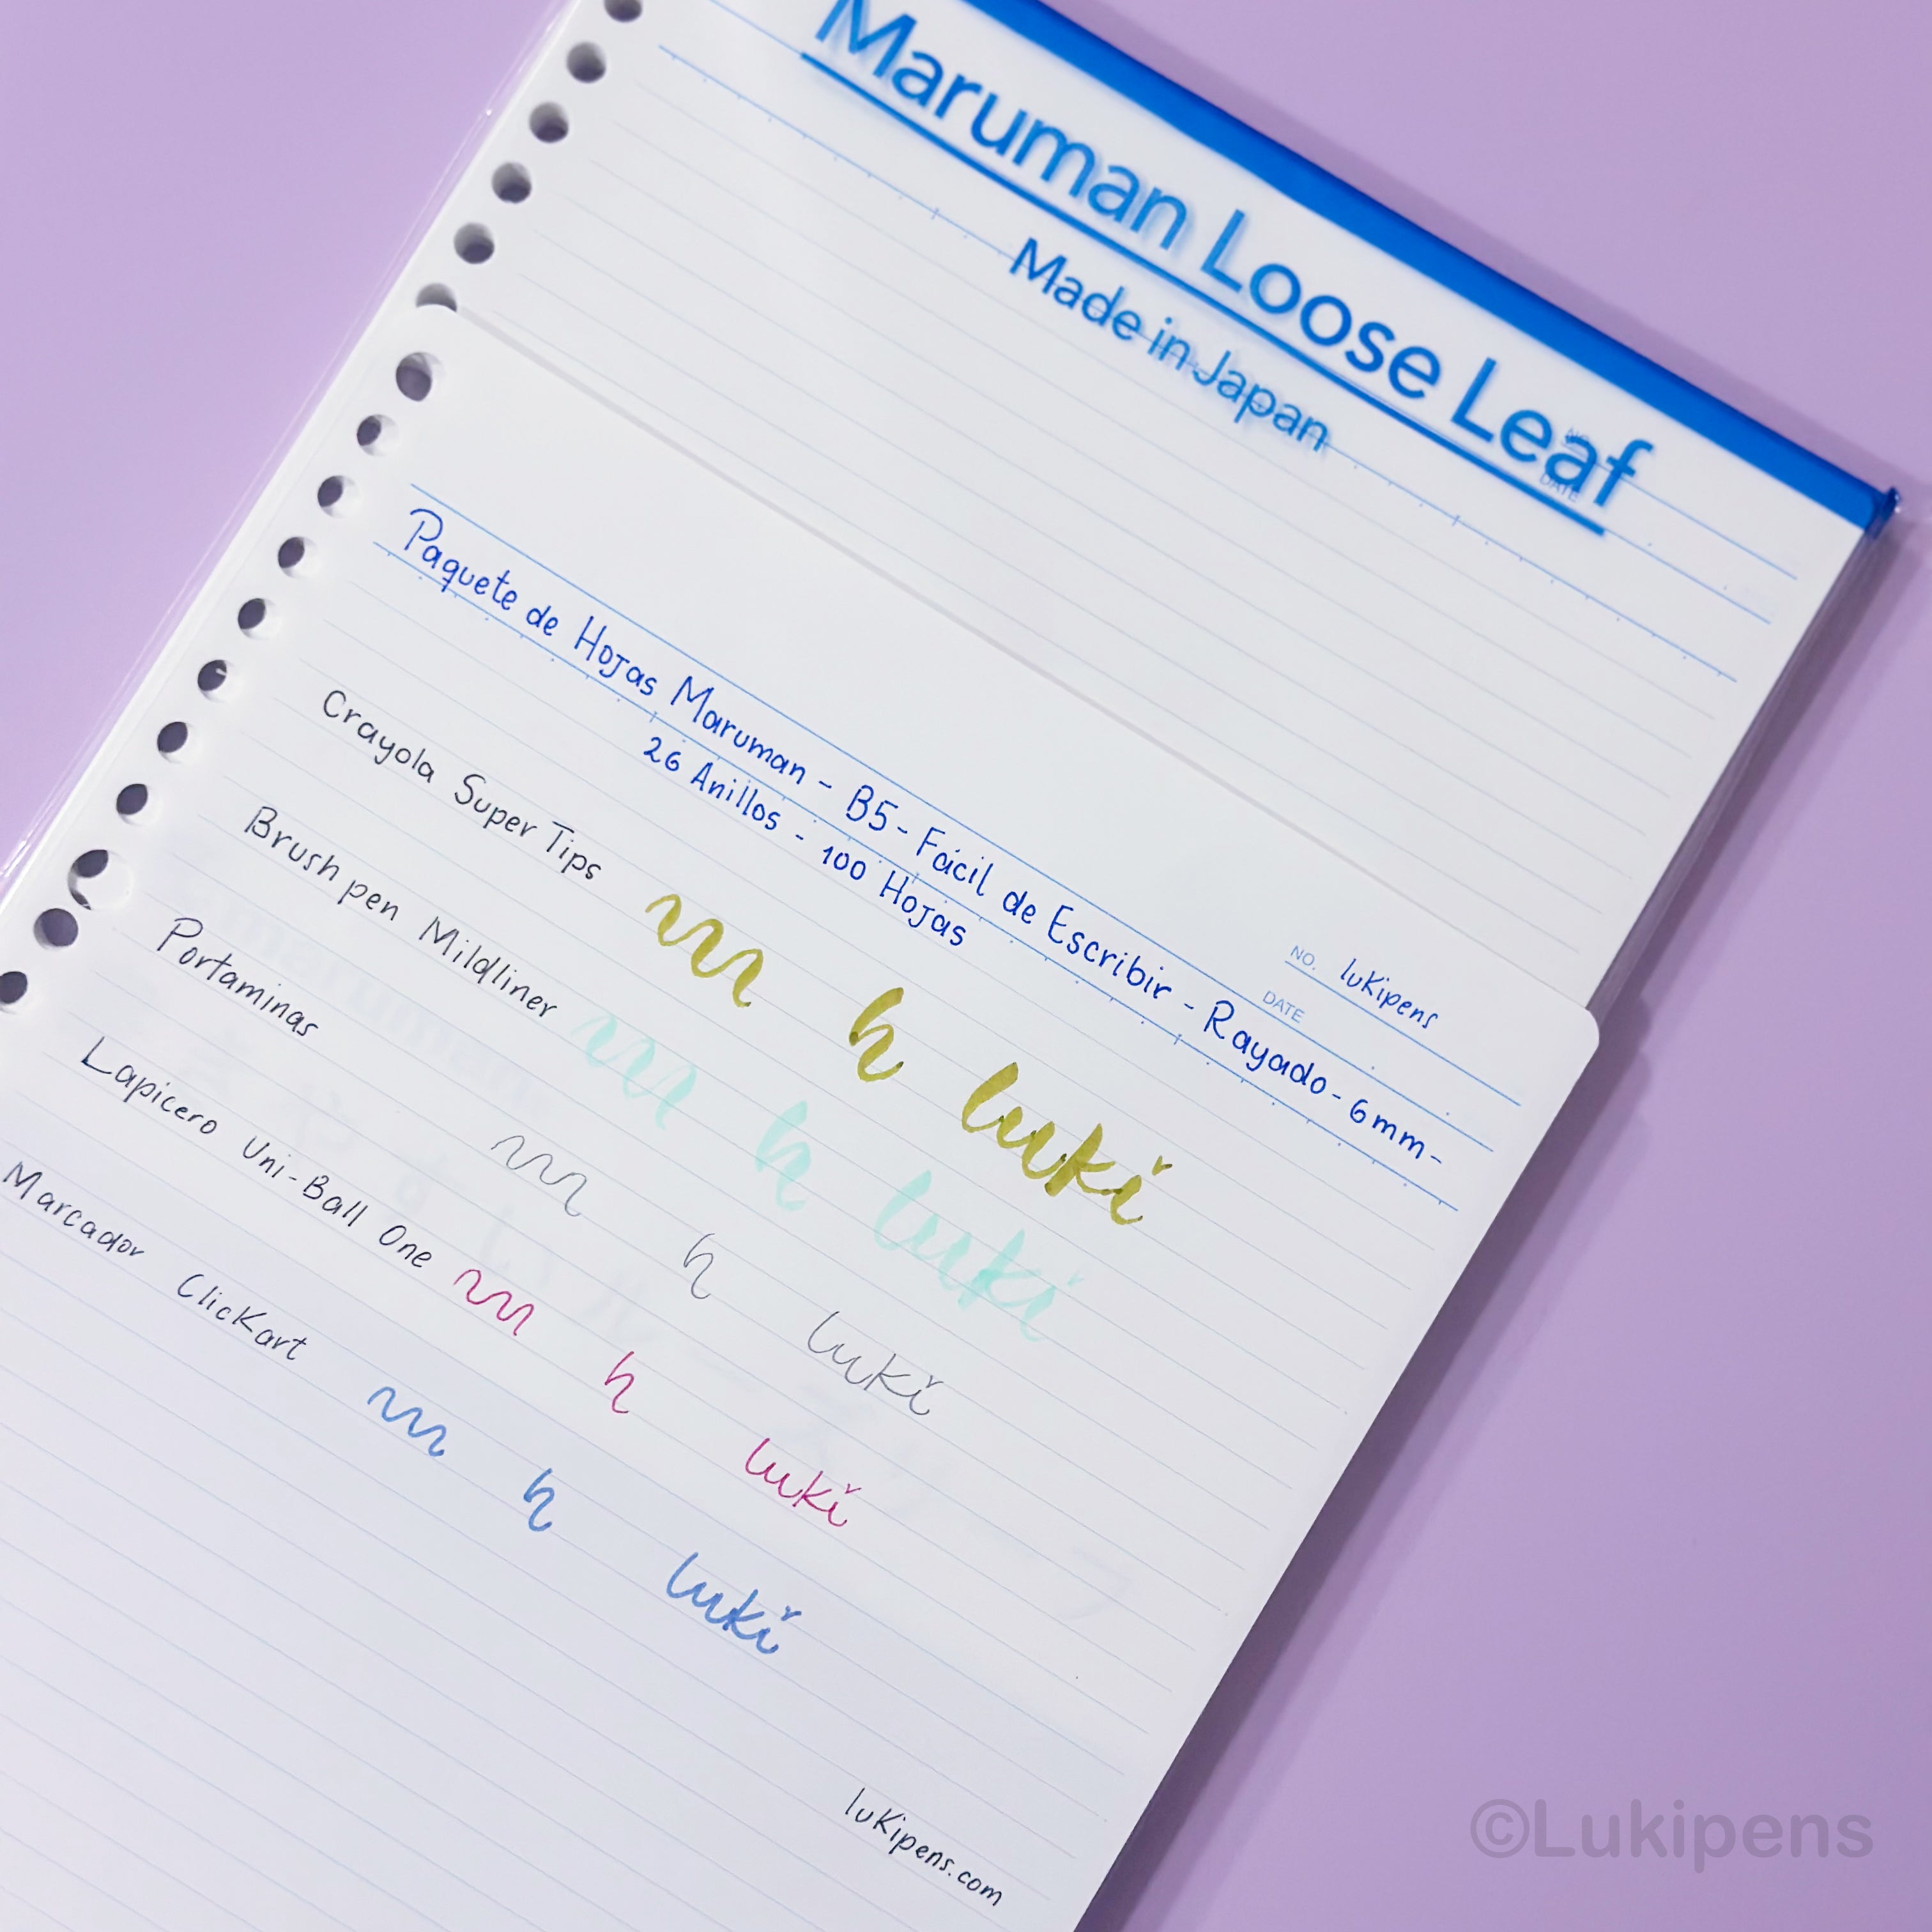 Maruman Loose Leaf
Made in Japan
NO.
DATE
NO. lukipens
DATE
Paquete de Hojas Maruman - B5 - Fácil de Escribir - Rayado - 6mm -
26 Anillos - 100 Hojas
Crayola Super Tips h luki
Brush pen Mildliner h luki
Portaminas h luki
Lapicero Uni-Ball One h luki
Marcador ClicKart h luki
lukipens.com
©Lukipens